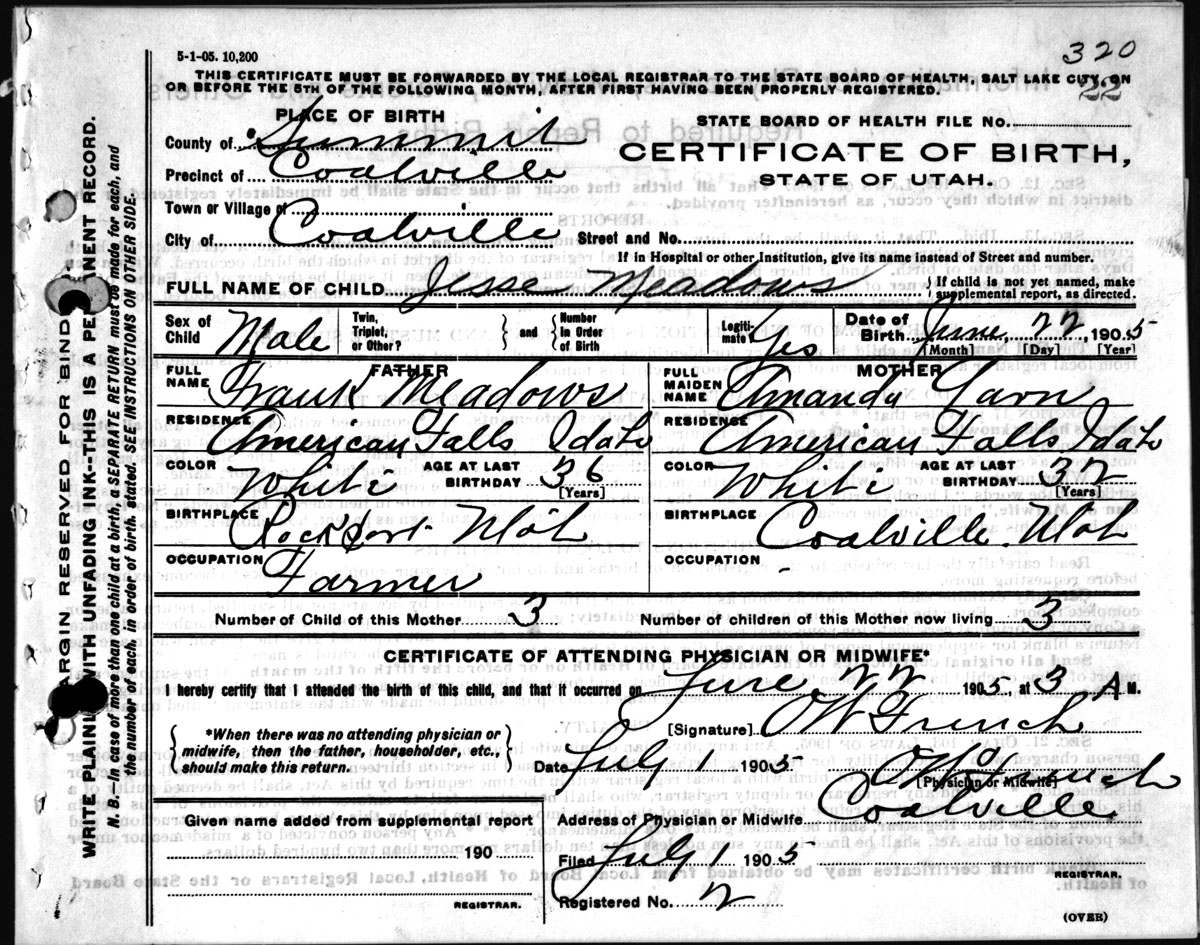 320
5-1-05. 10,200
THIS CERTIFICATE MUST BE FORWARDED BY THE LOCAL REGISTRAR TO THE STATE BOARD OF HEALTH, SALT LAKE CITY, ON
OR BEFORE THE 5TH OF THE FOLLOWING MONTH, AFTER FIRST HAVING BEEN PROPERLY REGISTERED.
22
PLACE OF BIRTH
STATE BOARD OF HEALTH FILE NO.
County of Summit
CERTIFICATE OF BIRTH,
Precinct of Coalville
STATE OF UTAH.
Town or Village of
City of Coalville Street and No.
If in Hospital or other Institution, give its name instead of Street and number.
FULL NAME OF CHILD Jesse Meadows { If child is not yet named, make
supplemental report, as directed.
Sex of Child Male Twin, Triplet, or Other? } and { Number in Order of Birth Legiti- mate? Yes Date of Birth June 22, 1905
[Month] [Day] [Year]
FATHER MOTHER
FULL NAME Frank Meadows FULL MAIDEN NAME Amandy
RESIDENCE American Falls Idaho RESIDENCE American Falls Idaho
COLOR White AGE AT LAST BIRTHDAY 36 [Years] COLOR White AGE AT LAST BIRTHDAY 32 [Years]
BIRTHPLACE Rockport Utah BIRTHPLACE Coalville Utah
OCCUPATION Farmer OCCUPATION -
Number of Child of this Mother 3 Number of children of this Mother now living 3
CERTIFICATE OF ATTENDING PHYSICIAN OR MIDWIFE*
I hereby certify that I attended the birth of this child, and that it occurred on June 22 1905, at 3 A M.
{ *When there was no attending physician or
midwife, then the father, householder, etc.,
should make this return. }
[Signature] OW French
Date July 1 1905 OW French
[Physician or Midwife]
Given name added from supplemental report
Address of Physician or Midwife Coalville
190
Filed July 1 1905
REGISTRAR.
REGISTRAR.
Registered No. 2
(OVER)
MARGIN RESERVED FOR BINDING
WRITE PLAINLY WITH UNFADING INK--THIS IS A PERMANENT RECORD.
N. B.--In case of more than one child at a birth, a SEPARATE RETURN must be made for each, and
the number of each, in order of birth, stated. SEE INSTRUCTIONS ON OTHER SIDE.